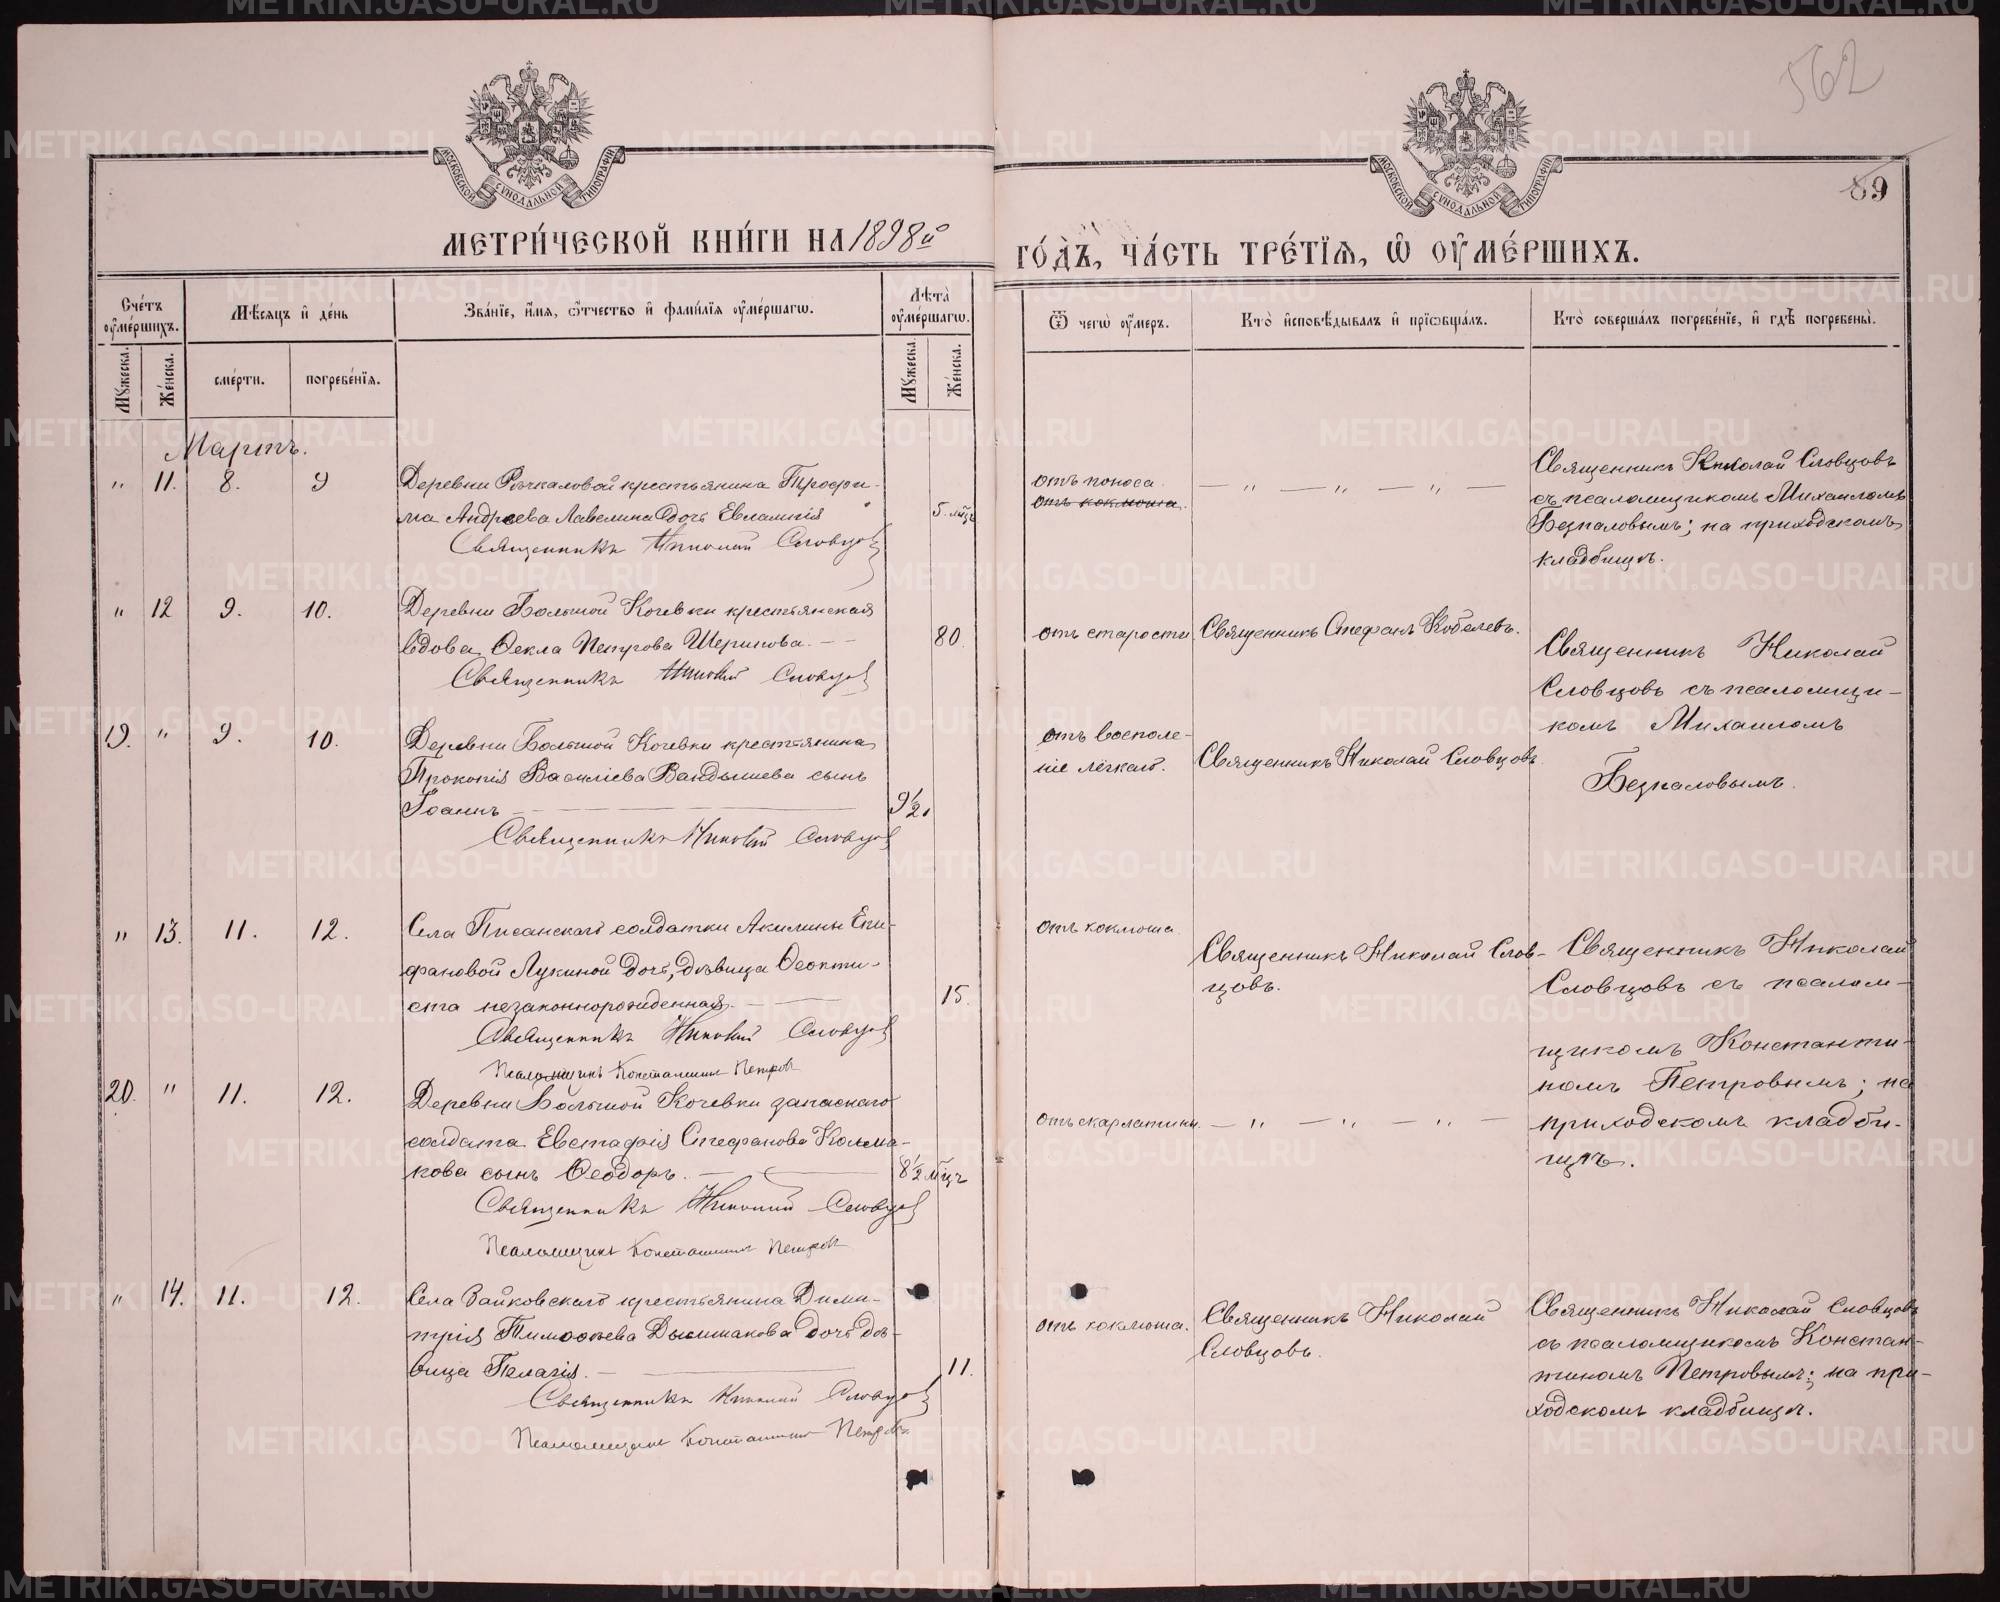 562
89
МОСКОВСКОЙ СѴНОДАЛЬНОЙ ТИПОГРАФІИ
МОСКОВСКОЙ СѴНОДАЛЬНОЙ ТИПОГРАФІИ
МЕТРИ́ЧЕСКОЙ КНИ́ГИ НА 1898й
ГО́ДЪ, ЧА́СТЬ ТРЕ́ТІѦ, Ѽ ОУМЕ́РШИХЪ.
Сче́тъ оуме́ршихъ.
Мѣ́сяцъ и де́нь
Зва́нїе, и́мѧ, ѻ҆́тчество и҆ фами́лїѧ оуме́ршагѡ.
Лѣта̀ оуме́ршагѡ.
Ѿ чегѡ̀ оу́меръ.
Кто̀ и҆сповѣ́дывалъ и҆ прїѡбща́лъ.
Кто̀ соверша́лъ погребе́нїе, и҆ гдѣ̀ погребены̀.
Мꙋ́жеска. Же́нска.
сме́рти. погребе́нїѧ.
Мꙋ́жеска. Же́нска.
Мартъ.
" 11. 8. 9
Деревни Речкаловой крестьянина Трофи-
ма Андреева Лавелина дочь Евлампія
5. мѣц
Священникъ Николай Словцов
отъ поноса.
отъ коклюша.
— " — " — " —
Священникъ Николай Словцовъ
съ псаломщикомъ Михаиломъ
Безпаловымъ; на приходскомъ
кладбищѣ.
" 12 9. 10.
Деревни Большой Кочевки крестьянская
вдова Ѳекла Петрова Шерикова. — —
80.
Священникъ Николай Словцов
отъ старости
Священникъ Стефанъ Кобелевъ.
Священникъ Николай
Словцовъ съ псаломщи-
комъ Михаиломъ
Безпаловымъ.
19. " 9. 10.
Деревни Большой Кочевки крестьянина
Прокопія Василіева Вандышева сынъ
Іоаннъ
9½.
Священникъ Николай Словцов
отъ восполе-
ніе лёгкаго.
Священникъ Николай Словцовъ
" 13. 11. 12.
Села Писанскаго солдатки Акилины Епи-
фановой Лукиной дочь, девица Ѳеокти-
ста незаконнорожденная.
15.
Священникъ Николай Словцов
Псаломщикъ Константинъ Петров
отъ коклюша.
Священникъ Николай Слов-
цовъ.
Священникъ Николай
Словцовъ съ псалом-
щикомъ Константи-
номъ Петровымъ; на
приходскомъ кладби-
щѣ.
20. " 11. 12.
Деревни Большой Кочевки запаснаго
солдата Евстафія Стефанова Колма-
кова сынъ Ѳеодоръ.
8½ мѣц
Священникъ Николай Словцов
Псаломщикъ Константинъ Петров
отъ скарлатины.
— " — " — " —
" 14. 11. 12.
Села Зайковскаго крестьянина Дими-
трія Тимоѳеева Дымшакова дочь де-
вица Пелагія.
11.
Священникъ Николай Словцов
Псаломщикъ Константинъ Петров
отъ коклюша.
Священникъ Николай
Словцовъ.
Священникъ Николай Словцовъ
съ псаломщикомъ Констан-
тиномъ Петровымъ; на при-
ходскомъ кладбищѣ.
METRIKI.GASO-URAL.RU